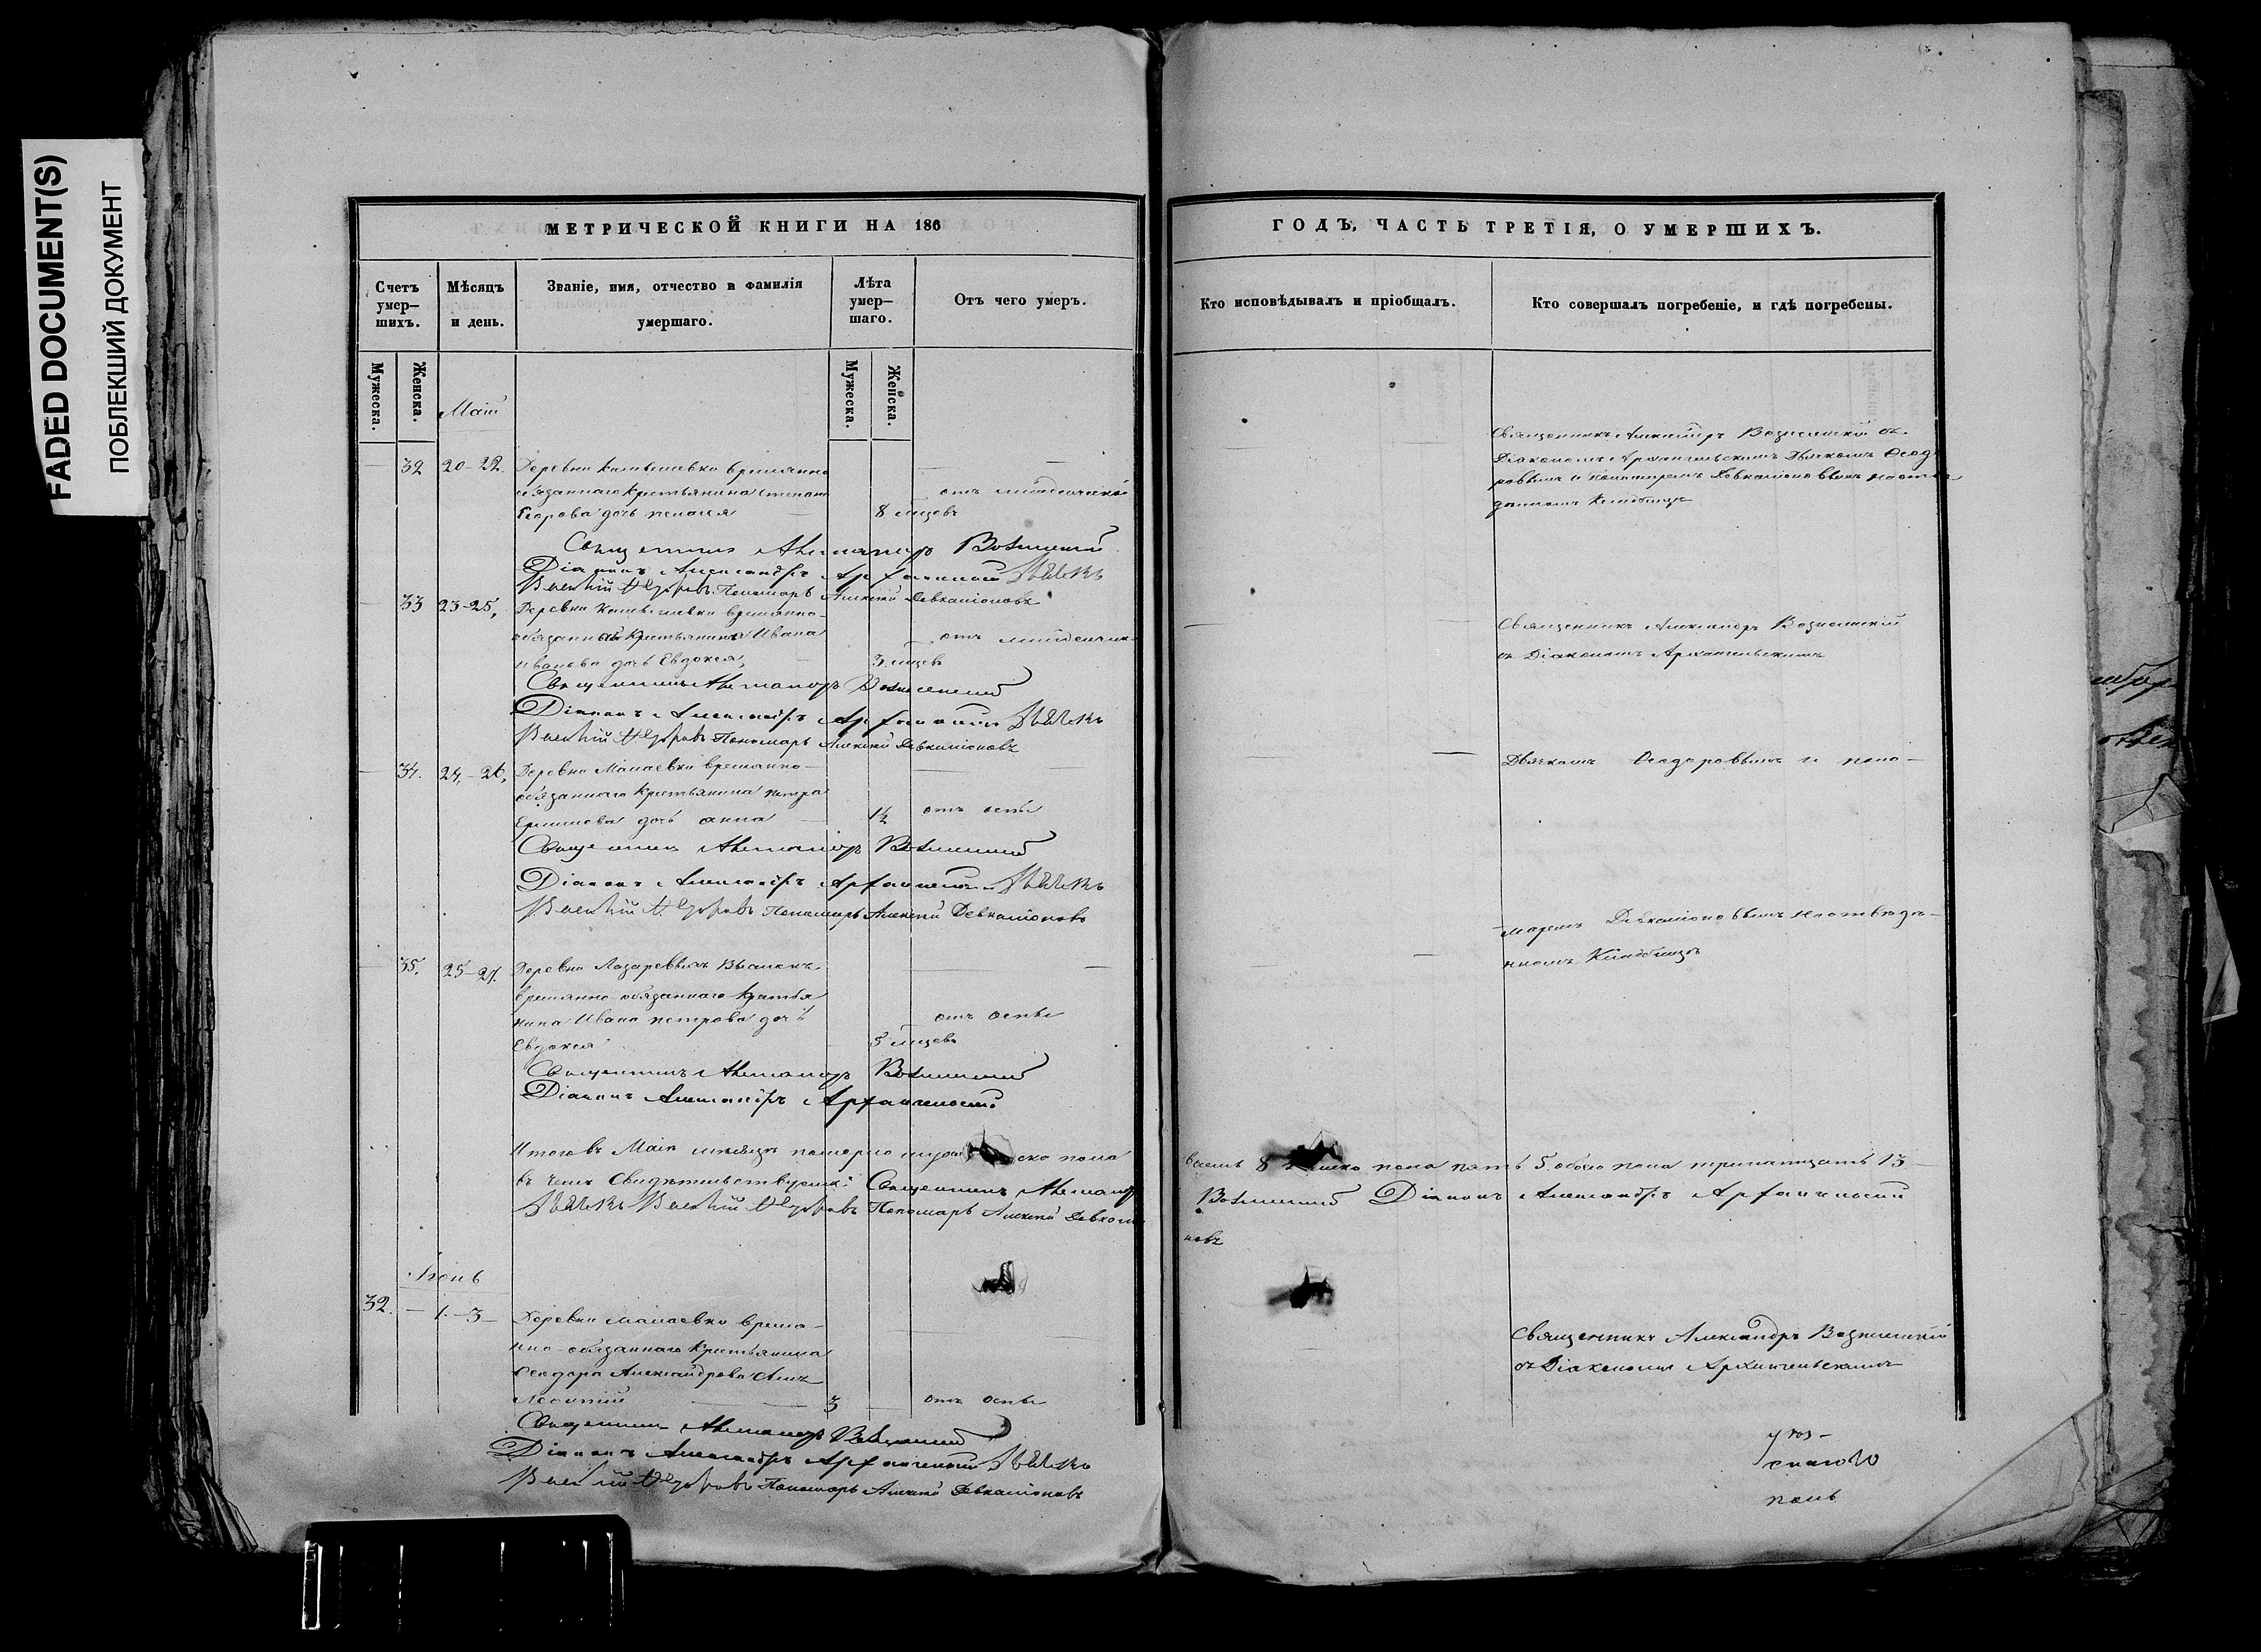 FADED DOCUMENT(S)
ПОБЛЕКШИЙ ДОКУМЕНТ
МЕТРИЧЕСКОЙ КНИГИ НА 186
Счетъ умер-шихъ.
Мѣсяцъ и день.
Званіе, имя, отчество и фамилія умершаго.
Лѣта умер-шаго.
Отъ чего умеръ.
Мужеска.
Женска.
Мужеска.
Женска.
Маій
32 20-22. Деревни временно
обязаннаго крестьянина Степана
Егорова дочь Пелагея 8 мѣсцевъ отъ младенческой
Священникъ Александръ Вознесенскій
Діаконъ Александръ Архангельскій Дьячекъ
Василій Ѳедоровъ Пономарь Алексѣй Девкаліоновъ
33 23-25, Деревни временно-
обязаннаго крестьянина Ивана
Иванова дочь Евдокея, 3 мѣсцевъ отъ младенческ
Священникъ Александръ Вознесенскій
Діаконъ Александръ Архангельскій Дьячекъ
Василій Ѳедоровъ Пономарь Алексѣй Девкаліоновъ
34. 24,-26, Деревни Мамаевки временно-
обязаннаго крестьянина Петра
дочь Анна 1½ отъ оспы
Священникъ Александръ Вознесенскій
Діаконъ Александръ Архангельскій Дьячекъ
Василій Ѳедоровъ Пономарь Алексѣй Девкаліоновъ
35, 25-27. Деревни Лазаревыхъ
временно-обязаннаго крестья
нина Ивана Петрова дочь
Евдокея 5 мѣсцевъ отъ оспы
Священникъ Александръ Вознесенскій
Діаконъ Александръ Архангельскій
Итого въ Маіи мѣсяцѣ померло ска пола
въ чемъ свидѣтельствуемъ: Священникъ Александръ
Дьячекъ Василій Ѳедоровъ Пономарь Алексѣй Девкаліо
Іюнь
32. — 1.-3— Деревни Мамаевки време-
нно-обязаннаго крестьянина
Ѳеодора Александрова сынъ
Леонтій 3 отъ оспы
Священникъ Александръ Вознесенскій
Діаконъ Александръ Архангельскій Дьячекъ
Василій Ѳедоровъ Пономарь Алексѣй Девкаліоновъ
ГОДЪ, ЧАСТЬ ТРЕТІЯ, О УМЕРШИХЪ.
Кто исповѣдывалъ и пріобщалъ.
Кто совершалъ погребеніе, и гдѣ погребены.
Священникъ Александръ Вознесенскій съ
Діакономъ Архангельскимъ Дьячкомъ Ѳеодо
ровымъ и Пономаремъ Девкаліоновымъ на отве
денномъ кладбищѣ
Священникъ Александръ Вознесенскій
съ Діакономъ Архангельскимъ
Дьячкомъ Ѳеодоровымъ и поно-
маремъ Девкаліоновымъ на отведе-
нномъ кладбищѣ
восемь 8 женско пола пять 5 обоего пола тринатцать 13
Вознесенскій Діаконъ Александръ Архангельскій
новъ
Священникъ Александръ Вознесенскій
съ Діакономъ Архангельскимъ